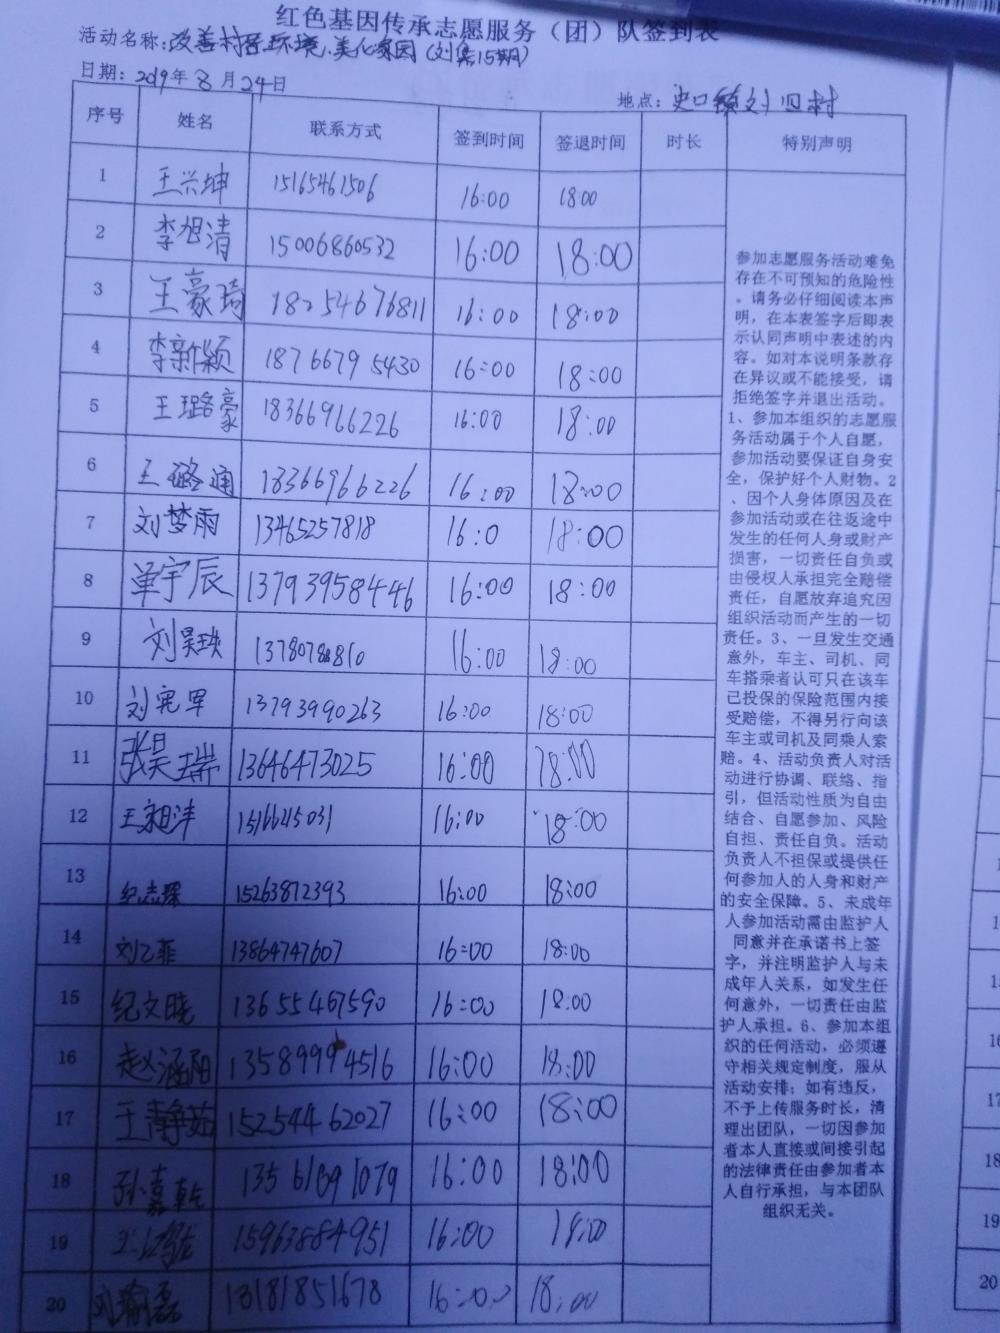 红色基因传承志愿服务（团）队签到表
活动名称：改善村居环境，美化家园（刘集15期）
日期：2019年8月24日
地点：史口镇刘旧村
序号 姓名 联系方式 签到时间 签退时间 时长 特别声明
1 王兴坤 15165461506 16:00 18:00
2 李旭清 15006860532 16:00 18:00
3 王豪琦 18254676811 16:00 18:00
4 李新颖 18766795430 16:00 18:00
5 王璐豪 18366966226 16:00 18:00
6 王璐通 18366966226 16:00 18:00
7 刘梦雨 13465257818 16:0 18:00
8 单宇辰 13793958446 16:00 18:00
9 刘昊 13780788810 16:00 18:00
10 刘宪军 13793990263 16:00 18:00
11 张昊瑞 13646473025 16:00 18:00
12 王 1516625031 16:00 18:00
13 纪志 15263872393 16:00 18:00
14 刘乙菲 13864747607 16:00 18:00
15 纪文晓 13655467590 16:00 18:00
16 赵涵阳 13589994516 16:00 18:00
17 王静茹 15254462027 16:00 18:00
18 孙嘉乾 13561691079 16:00 18:00
19 15963884951 16:00 18:00
20 刘瑜磊 13181851678 16:00 18:00
参加志愿服务活动难免
存在不可预知的危险性
。请务必仔细阅读本声
明，在本表签字后即表
示认同声明中表述的内
容。如对本说明条款存
在异议或不能接受，请
拒绝签字并退出活动。
1、参加本组织的志愿服
务活动属于个人自愿，
参加活动要保证自身安
全，保护好个人财物。2
、因个人身体原因及在
参加活动或在往返途中
发生的任何人身或财产
损害，一切责任自负或
由侵权人承担完全赔偿
责任，自愿放弃追究因
组织活动而产生的一切
责任。3、一旦发生交通
意外，车主、司机、同
车搭乘者认可只在该车
已投保的保险范围内接
受赔偿，不得另行向该
车主或司机及同乘人索
赔。4、活动负责人对活
动进行协调、联络、指
引，但活动性质为自由
结合、自愿参加、风险
自担、责任自负。活动
负责人不担保或提供任
何参加人的人身和财产
的安全保障。5、未成年
人参加活动需由监护人
同意并在承诺书上签
字，并注明监护人与未
成年人关系，如发生任
何意外，一切责任由监
护人承担。6、参加本组
织的任何活动，必须遵
守相关规定制度，服从
活动安排；如有违反，
不予上传服务时长，清
理出团队，一切因参加
者本人直接或间接引起
的法律责任由参加者本
人自行承担，与本团队
组织无关。
16
17
18
19
20